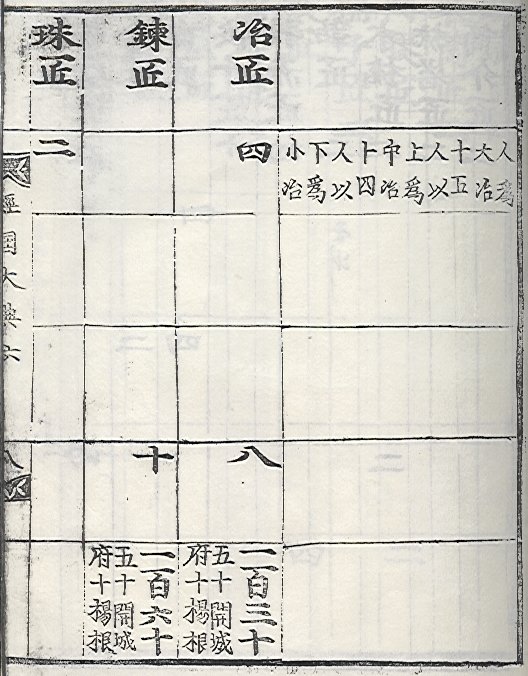 人爲
大冶
十五
人以
上爲
中冶
十四
人以
下爲
小冶
冶匠
四
八
二百三十
五十開城
府十楊根
鍊匠
十
二百六十
五十開城
府十楊根
珠匠
二
經國大典六
八